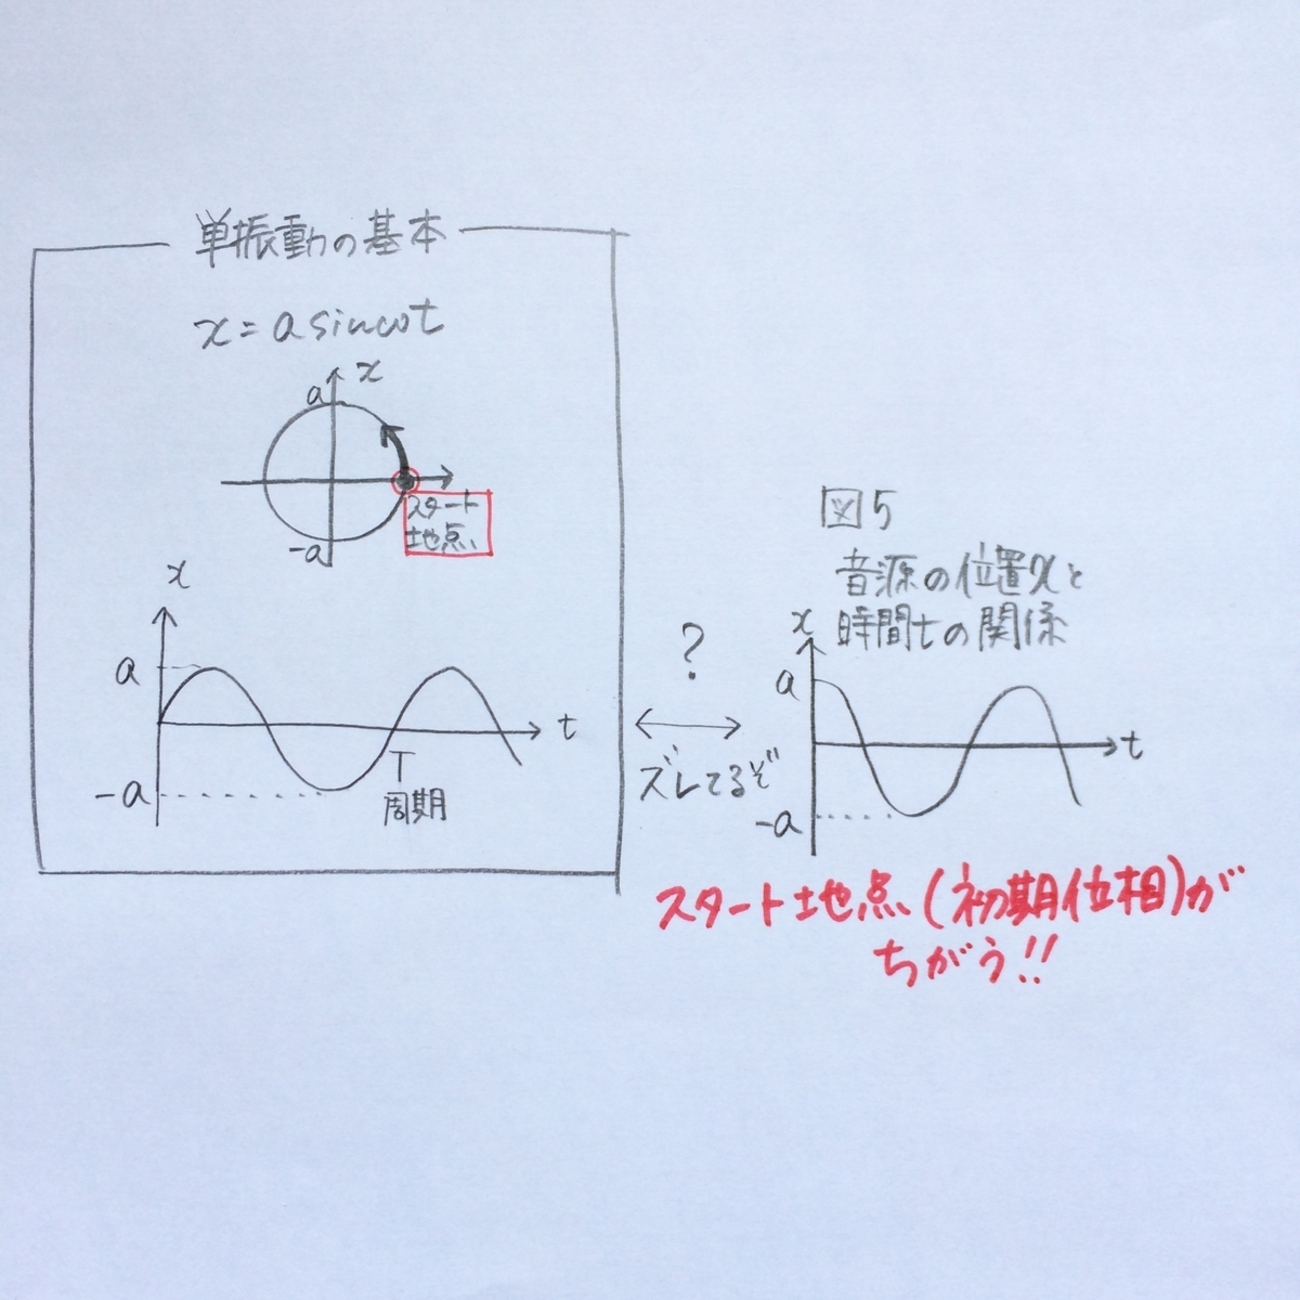 単振動の基本
x=asinωt
x
a
スタート
地点
-a
x
a
t
T
周期
-a
?
ズレてるぞ
図5
音源の位置xと
時間tの関係
x
a
t
-a
スタート地点(初期位相)が
ちがう!!